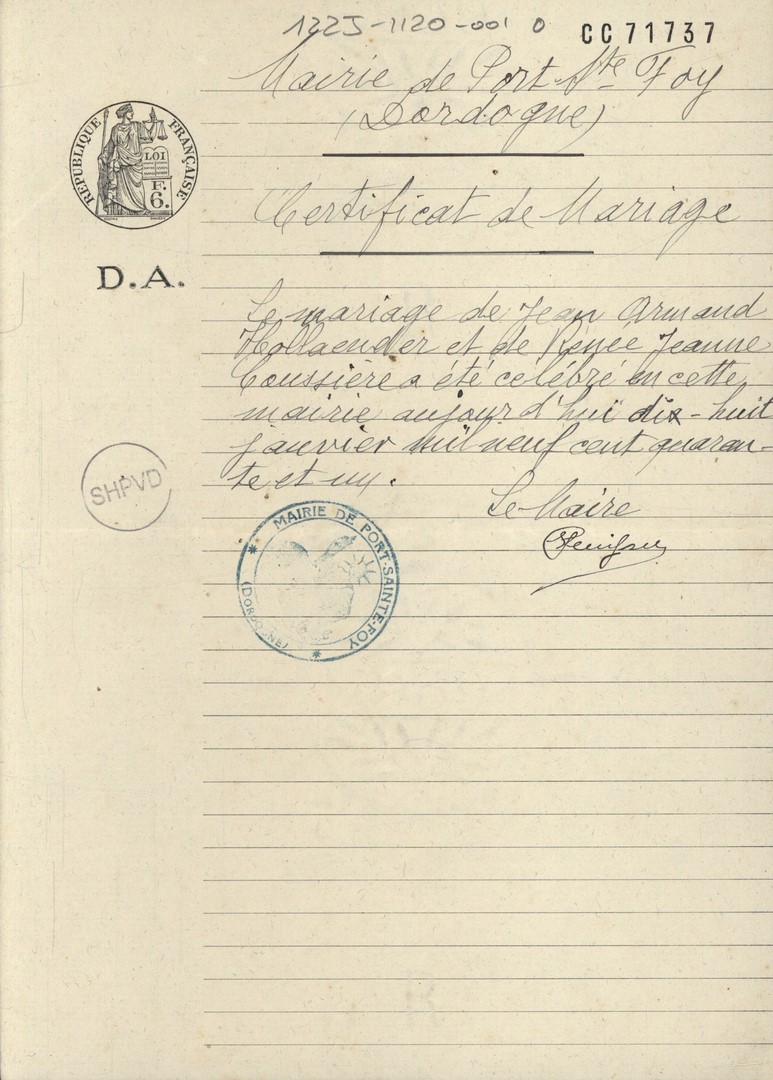 1225-1120-001 0
CC71737
Mairie de Port-Ste Foy
(Dordogne)
RÉPUBLIQUE FRANÇAISE
LOI
F.
6.
Certificat de Mariage
D.A.
Le mariage de Jean Armand
Hollaender et de Renée Jeanne
Coussière a été célébré en cette
mairie aujourd'hui dix-huit
janvier mil neuf cent quaran-
te et un.
SHPVD
Le Maire
MAIRIE DE PORT-SAINTE-FOY
(DORDOGNE)